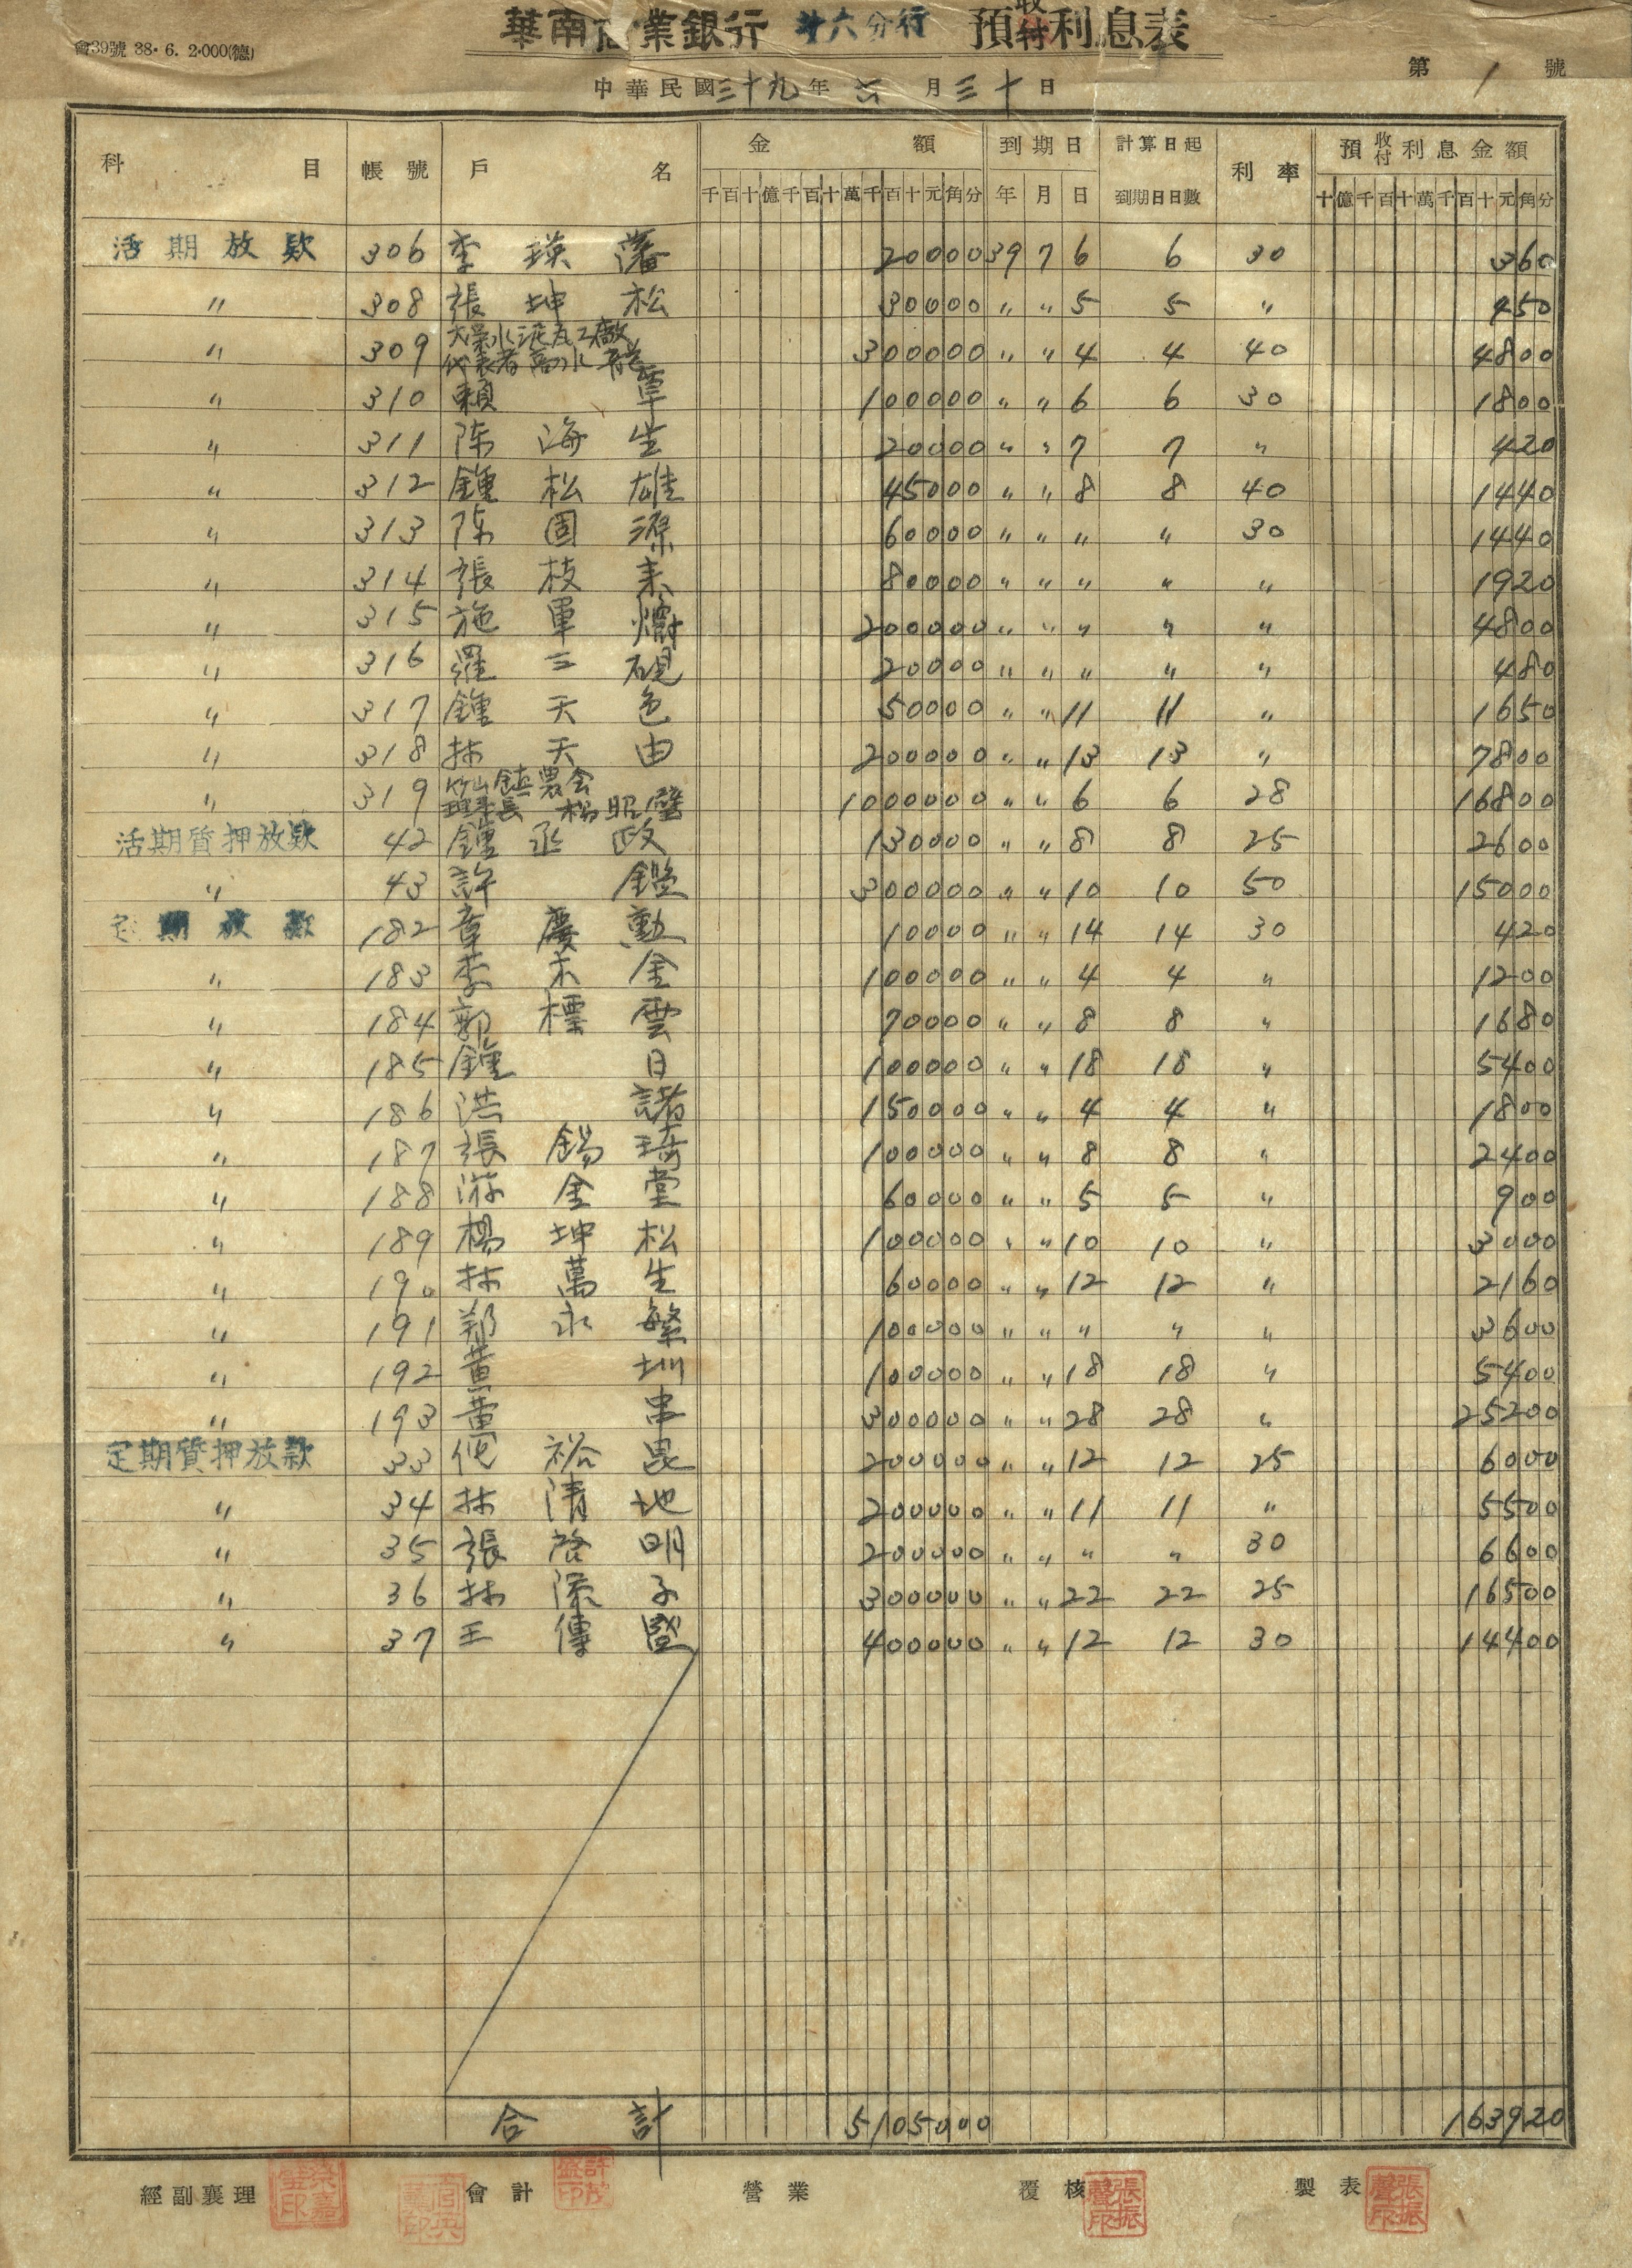 華南商業銀行 斗六分行 預收付利息表
會39號 38.6.2.000(德)
第 1 號
中華民國三十九年六月三十日
科目 帳號 戶名 金額 到期日 計算日起到期日日數 利率 預收付利息金額
千百十億千百十萬千百十元角分 年 月 日 十億千百十萬千百十元角分
活期放款 306 李瑛藩 20000 39 7 6 6 30 360
〃 308 張坤松 30000 〃 〃 5 5 〃 450
〃 309 水泥瓦工廠 代表者 300000 〃 〃 4 4 40 4800
〃 310 賴覃 100000 〃 〃 6 6 30 1800
〃 311 陈海生 20000 〃 〃 7 7 〃 420
〃 312 鍾松雄 45000 〃 〃 8 8 40 1440
〃 313 陈固源 60000 〃 〃 〃 〃 30 1440
〃 314 張枝來 80000 〃 〃 〃 〃 〃 1920
〃 315 施軍 200000 〃 〃 〃 〃 〃 4800
〃 316 羅三硯 20000 〃 〃 〃 〃 〃 480
〃 317 鍾天色 50000 〃 〃 11 11 〃 1650
〃 318 林天由 200000 〃 〃 13 13 〃 7800
〃 319 竹山鎮農会 理事長 昭璧 1000000 〃 〃 6 6 28 16800
活期質押放款 42 鍾丞政 130000 〃 〃 8 8 25 2600
〃 43 許鑑 300000 〃 〃 10 10 50 15000
定期放款 182 章慶勳 10000 〃 〃 14 14 30 420
〃 183 李木金 100000 〃 〃 4 4 〃 1200
〃 184 郭標雲 70000 〃 〃 8 8 〃 1680
〃 185 鍾日 100000 〃 〃 18 18 〃 5400
〃 186 洪諸 150000 〃 〃 4 4 〃 1800
〃 187 張錫琦 100000 〃 〃 8 8 〃 2400
〃 188 游金堂 60000 〃 〃 5 5 〃 900
〃 189 楊坤松 100000 〃 〃 10 10 〃 3000
〃 190 林萬生 60000 〃 〃 12 12 〃 2160
〃 191 鄭永繁 100000 〃 〃 〃 〃 〃 3600
〃 192 黃圳 100000 〃 〃 18 18 〃 5400
〃 193 黃串 300000 〃 〃 28 28 〃 25200
定期質押放款 33 裕昆 200000 〃 〃 12 12 25 6000
〃 34 林清地 200000 〃 〃 11 11 〃 5500
〃 35 張啓明 200000 〃 〃 〃 〃 30 6600
〃 36 林深子 300000 〃 〃 22 22 25 16500
〃 37 王傳 400000 〃 〃 12 12 30 14400
合計 5105000 163920
經副襄理 會計 營業 覆核 張振聲印 製表 張振聲印